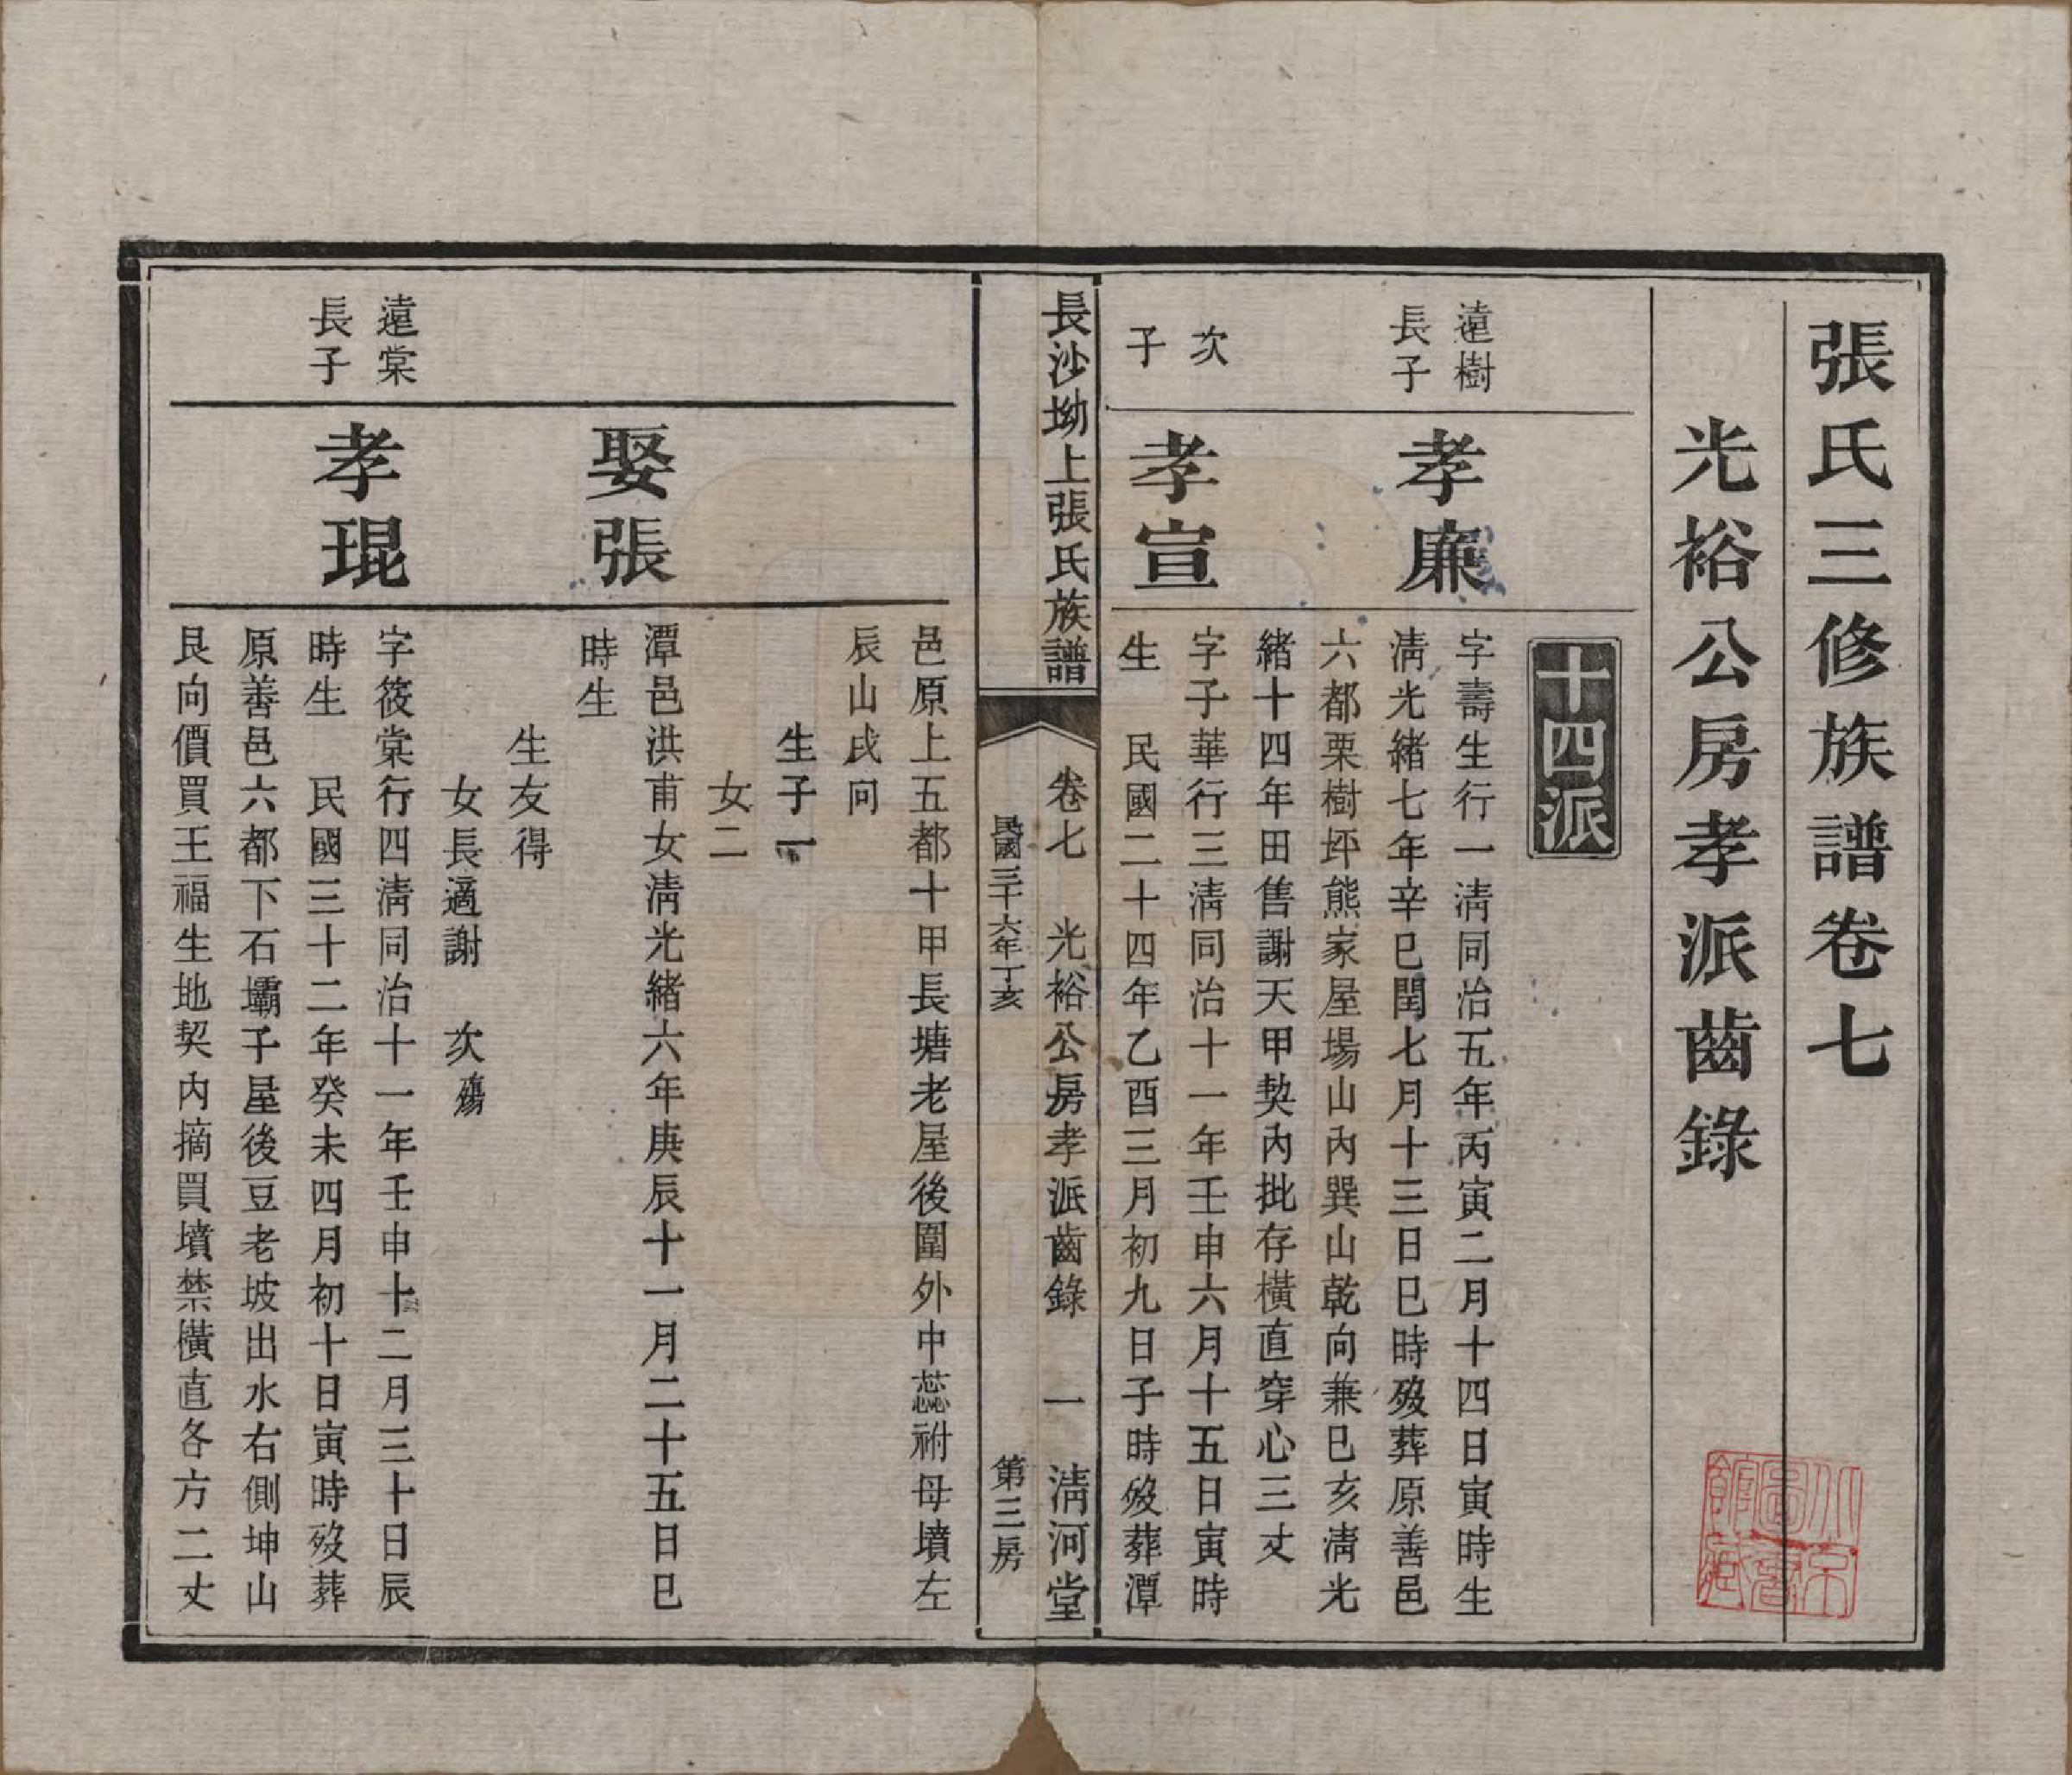 張氏三修族譜卷七
光裕公房孝派齒錄
十四派
遠樹
長子
孝廉
字壽生行一淸同治五年丙寅二月十四日寅時生
淸光緒七年辛巳閏七月十三日巳時歿葬原善邑
六都栗樹坪熊家屋場山內巽山乾向兼巳亥淸光
緒十四年田售謝天甲契內批存橫直穿心三丈
次
子
孝宣
字子華行三淸同治十一年壬申六月十五日寅時
生　民國二十四年乙酉三月初九日子時歿葬潭
長沙坳上張氏族譜
卷七　光裕公房孝派齒錄　一　淸河堂
民國三十六年丁亥　第三房
邑原上五都十甲長塘老屋後圍外中蕊祔母墳左
辰山戌向
生子一
女二
娶張
潭邑洪甫女淸光緒六年庚辰十一月二十五日巳
時生
生友得
女長適謝　次殤
遠棠
長子
孝琨
字筱棠行四淸同治十一年壬申十二月三十日辰
時生　民國三十二年癸未四月初十日寅時歿葬
原善邑六都下石壩子屋後豆老坡出水右側坤山
艮向價買王福生地契內摘買墳禁橫直各方二丈
北京圖書館藏